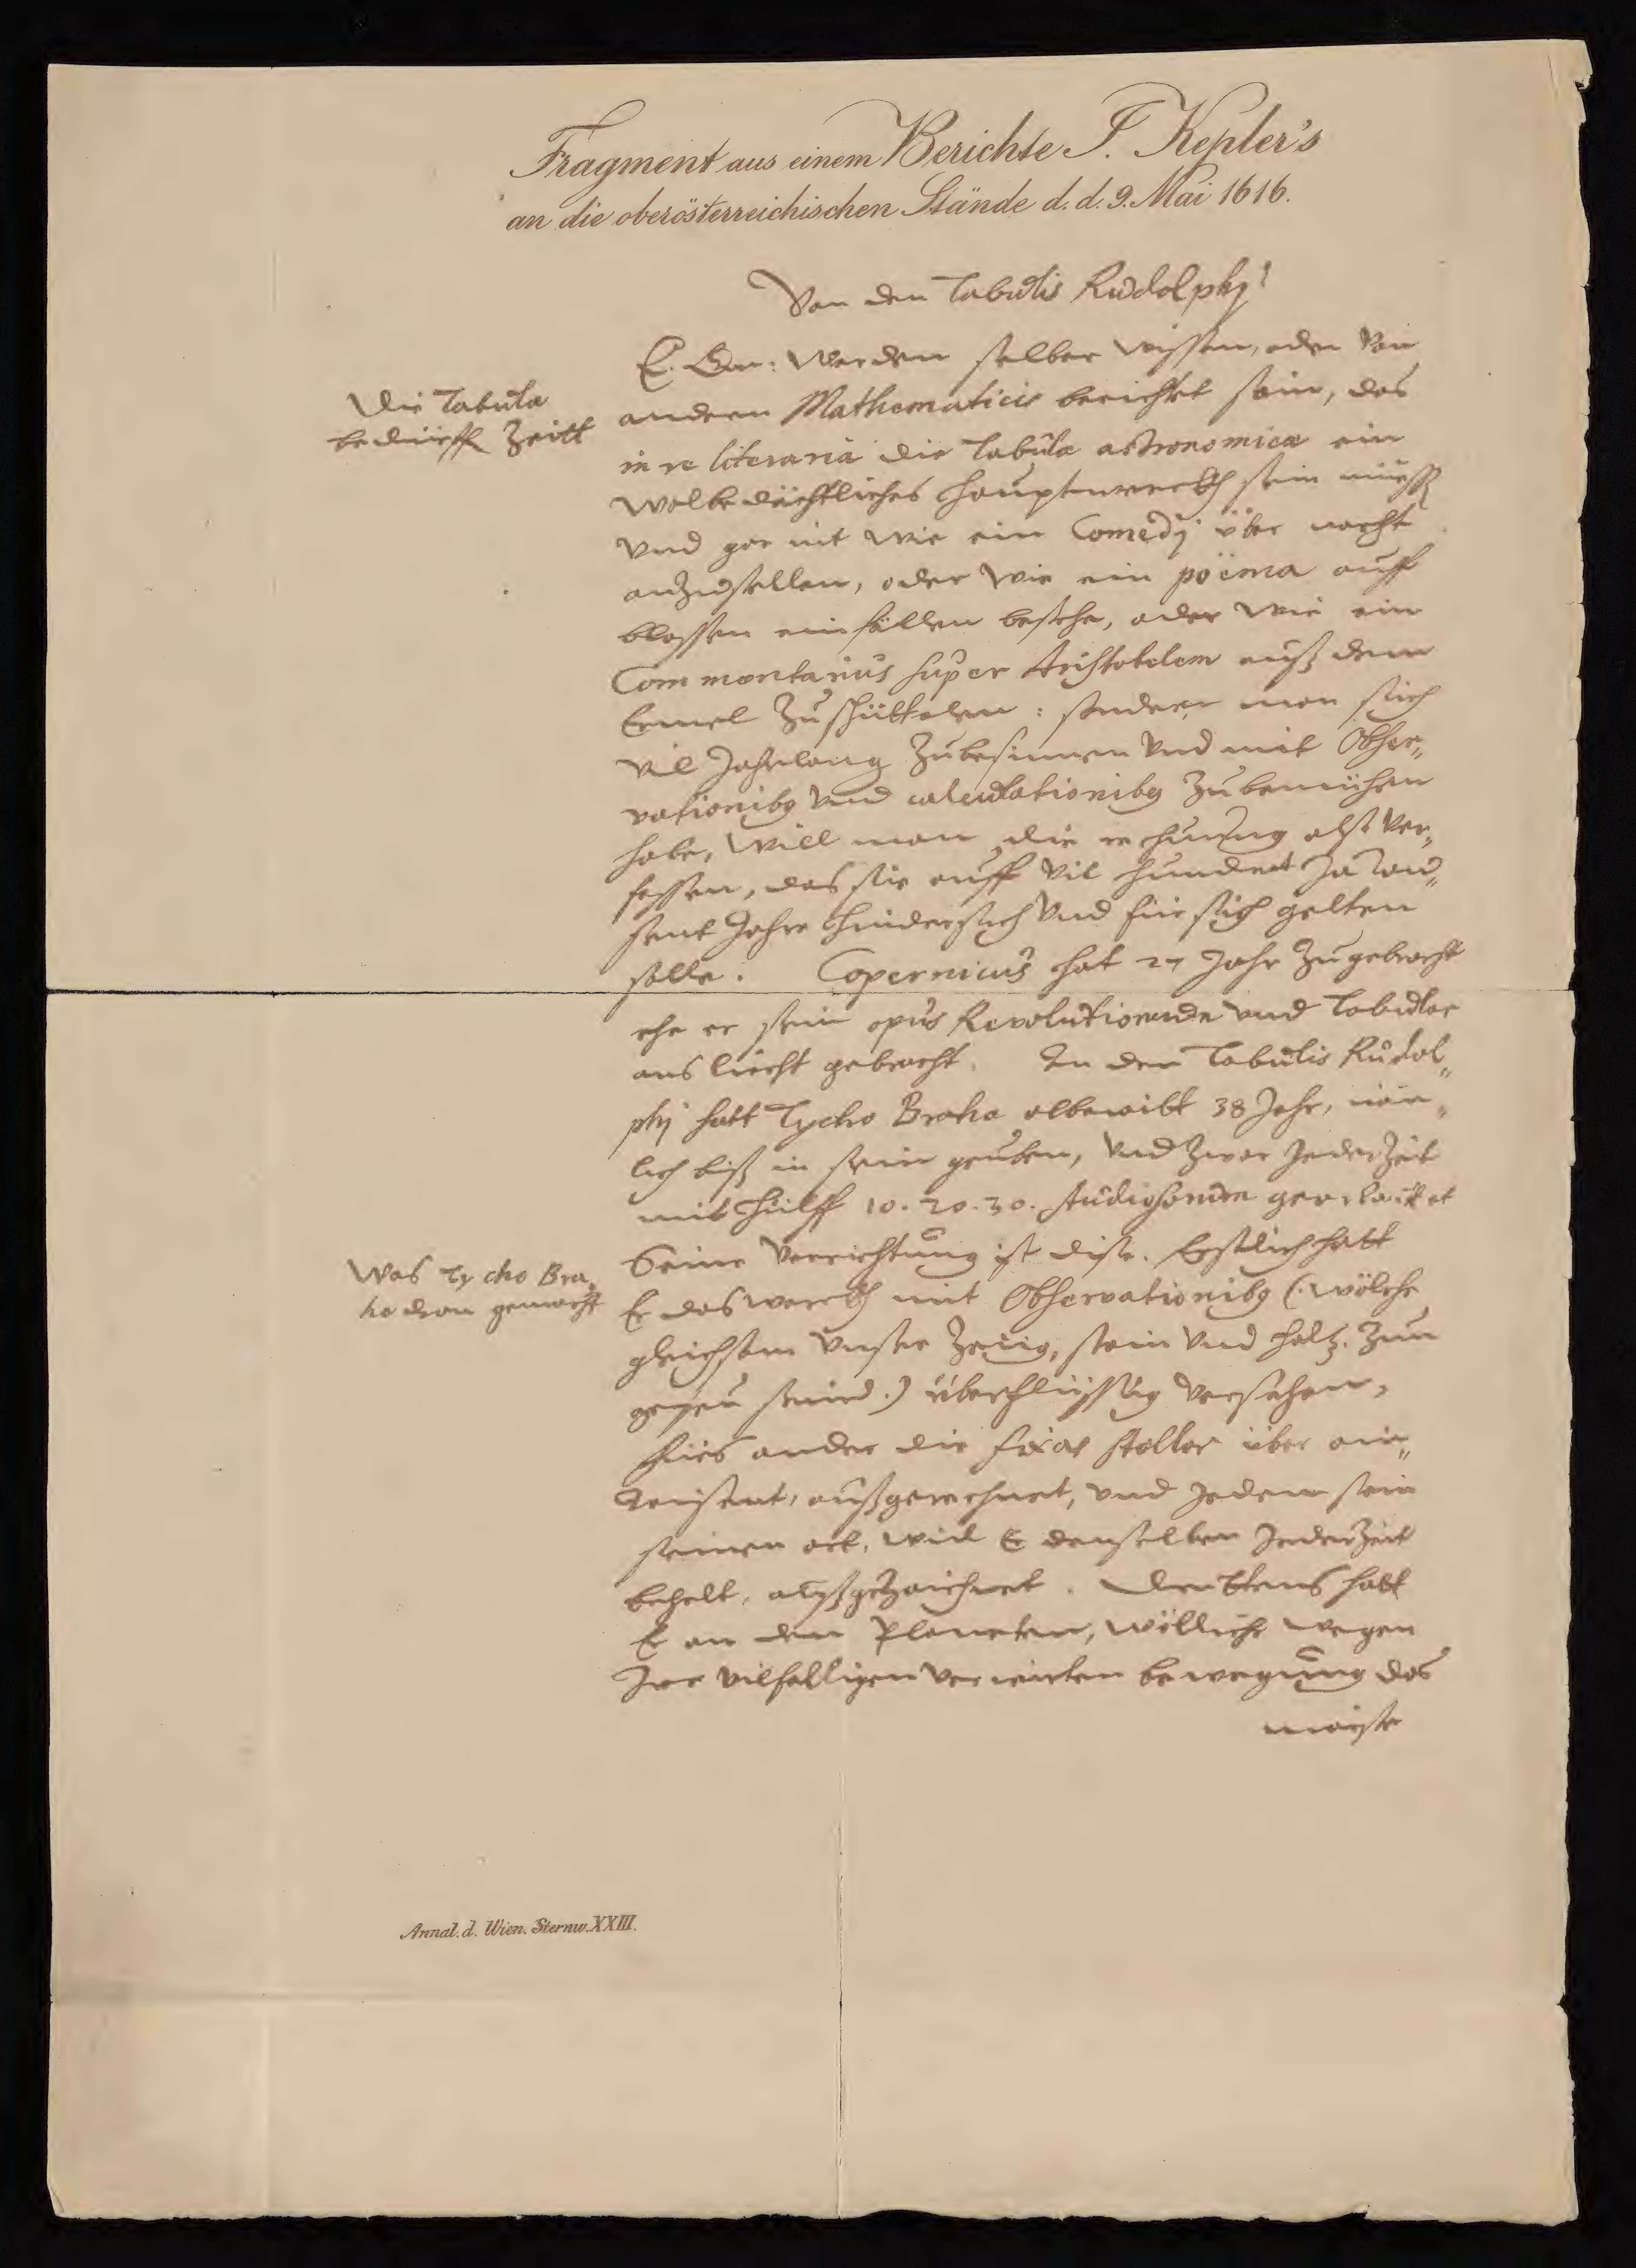 Fragment aus einem Berichte J. Kepler's
an die oberösterreichischen Stände d. d. 9. Mai 1616.
Von den Tabulis Rudolphj
E. Gn: werden selber wissen, oder von
Die Tabulæ
bedürffen Zeitt
andern Mathematicis berichtet sein, das
in re literaria die Tabulæ astronomicæ ein
wolbedächtliches hauptwerckh sein müessen
vnd gar nit wie ein Comedj über nacht
anzustellen, oder wie ein poëma auff
blossen einfällen bestehe, oder wie ein
Commentarius super Aristotelem auß dem
Ermel zuschüttelen: sondern man sich
vil Jahrlang zubesinnen vnd mit Obser„
vationibus vnd calculationibus zubemühen
habe, will man die rechnung also ver„
fassen, das sie auff vil hundert Ja tau„
sent Jahre hindersich vnd für sich gelten
solle. Copernicus hat 27 Jahr zugebracht
ehe er sein opus Revolutionum vnd Tabulas
ans liecht gebracht. An den Tabulis Rudol„
phj hatt Tycho Brahe 38 Jahr, näm„
lich biß in sein gruben, vnd zwar Jederzeit
mit hülff 10. 20. 30. studiosorum gearbaittet
Seine verrichtung ist dise. Erstlich hatt
Was Tycho Bra„
he dran gemacht
Er das werckh mit Observationibus (: wölche
gleichsam vnser Zeüg, stain vnd holtz. zum
gepeü seind.) überflüssig versehen,
Fürs ander die fixas stellas über ein„
Tausent, außgerechnet, vnd Jedem stern
seinen ort, weil Er denselben Jederzeit
behelt, außgezaichnet. Drittens hatt
Er an den Planeten, wölliche wegen
Irer vilfaltigen verwirten bewegung das
maiste
Annal. d. Wien. Sternw. XXIII.